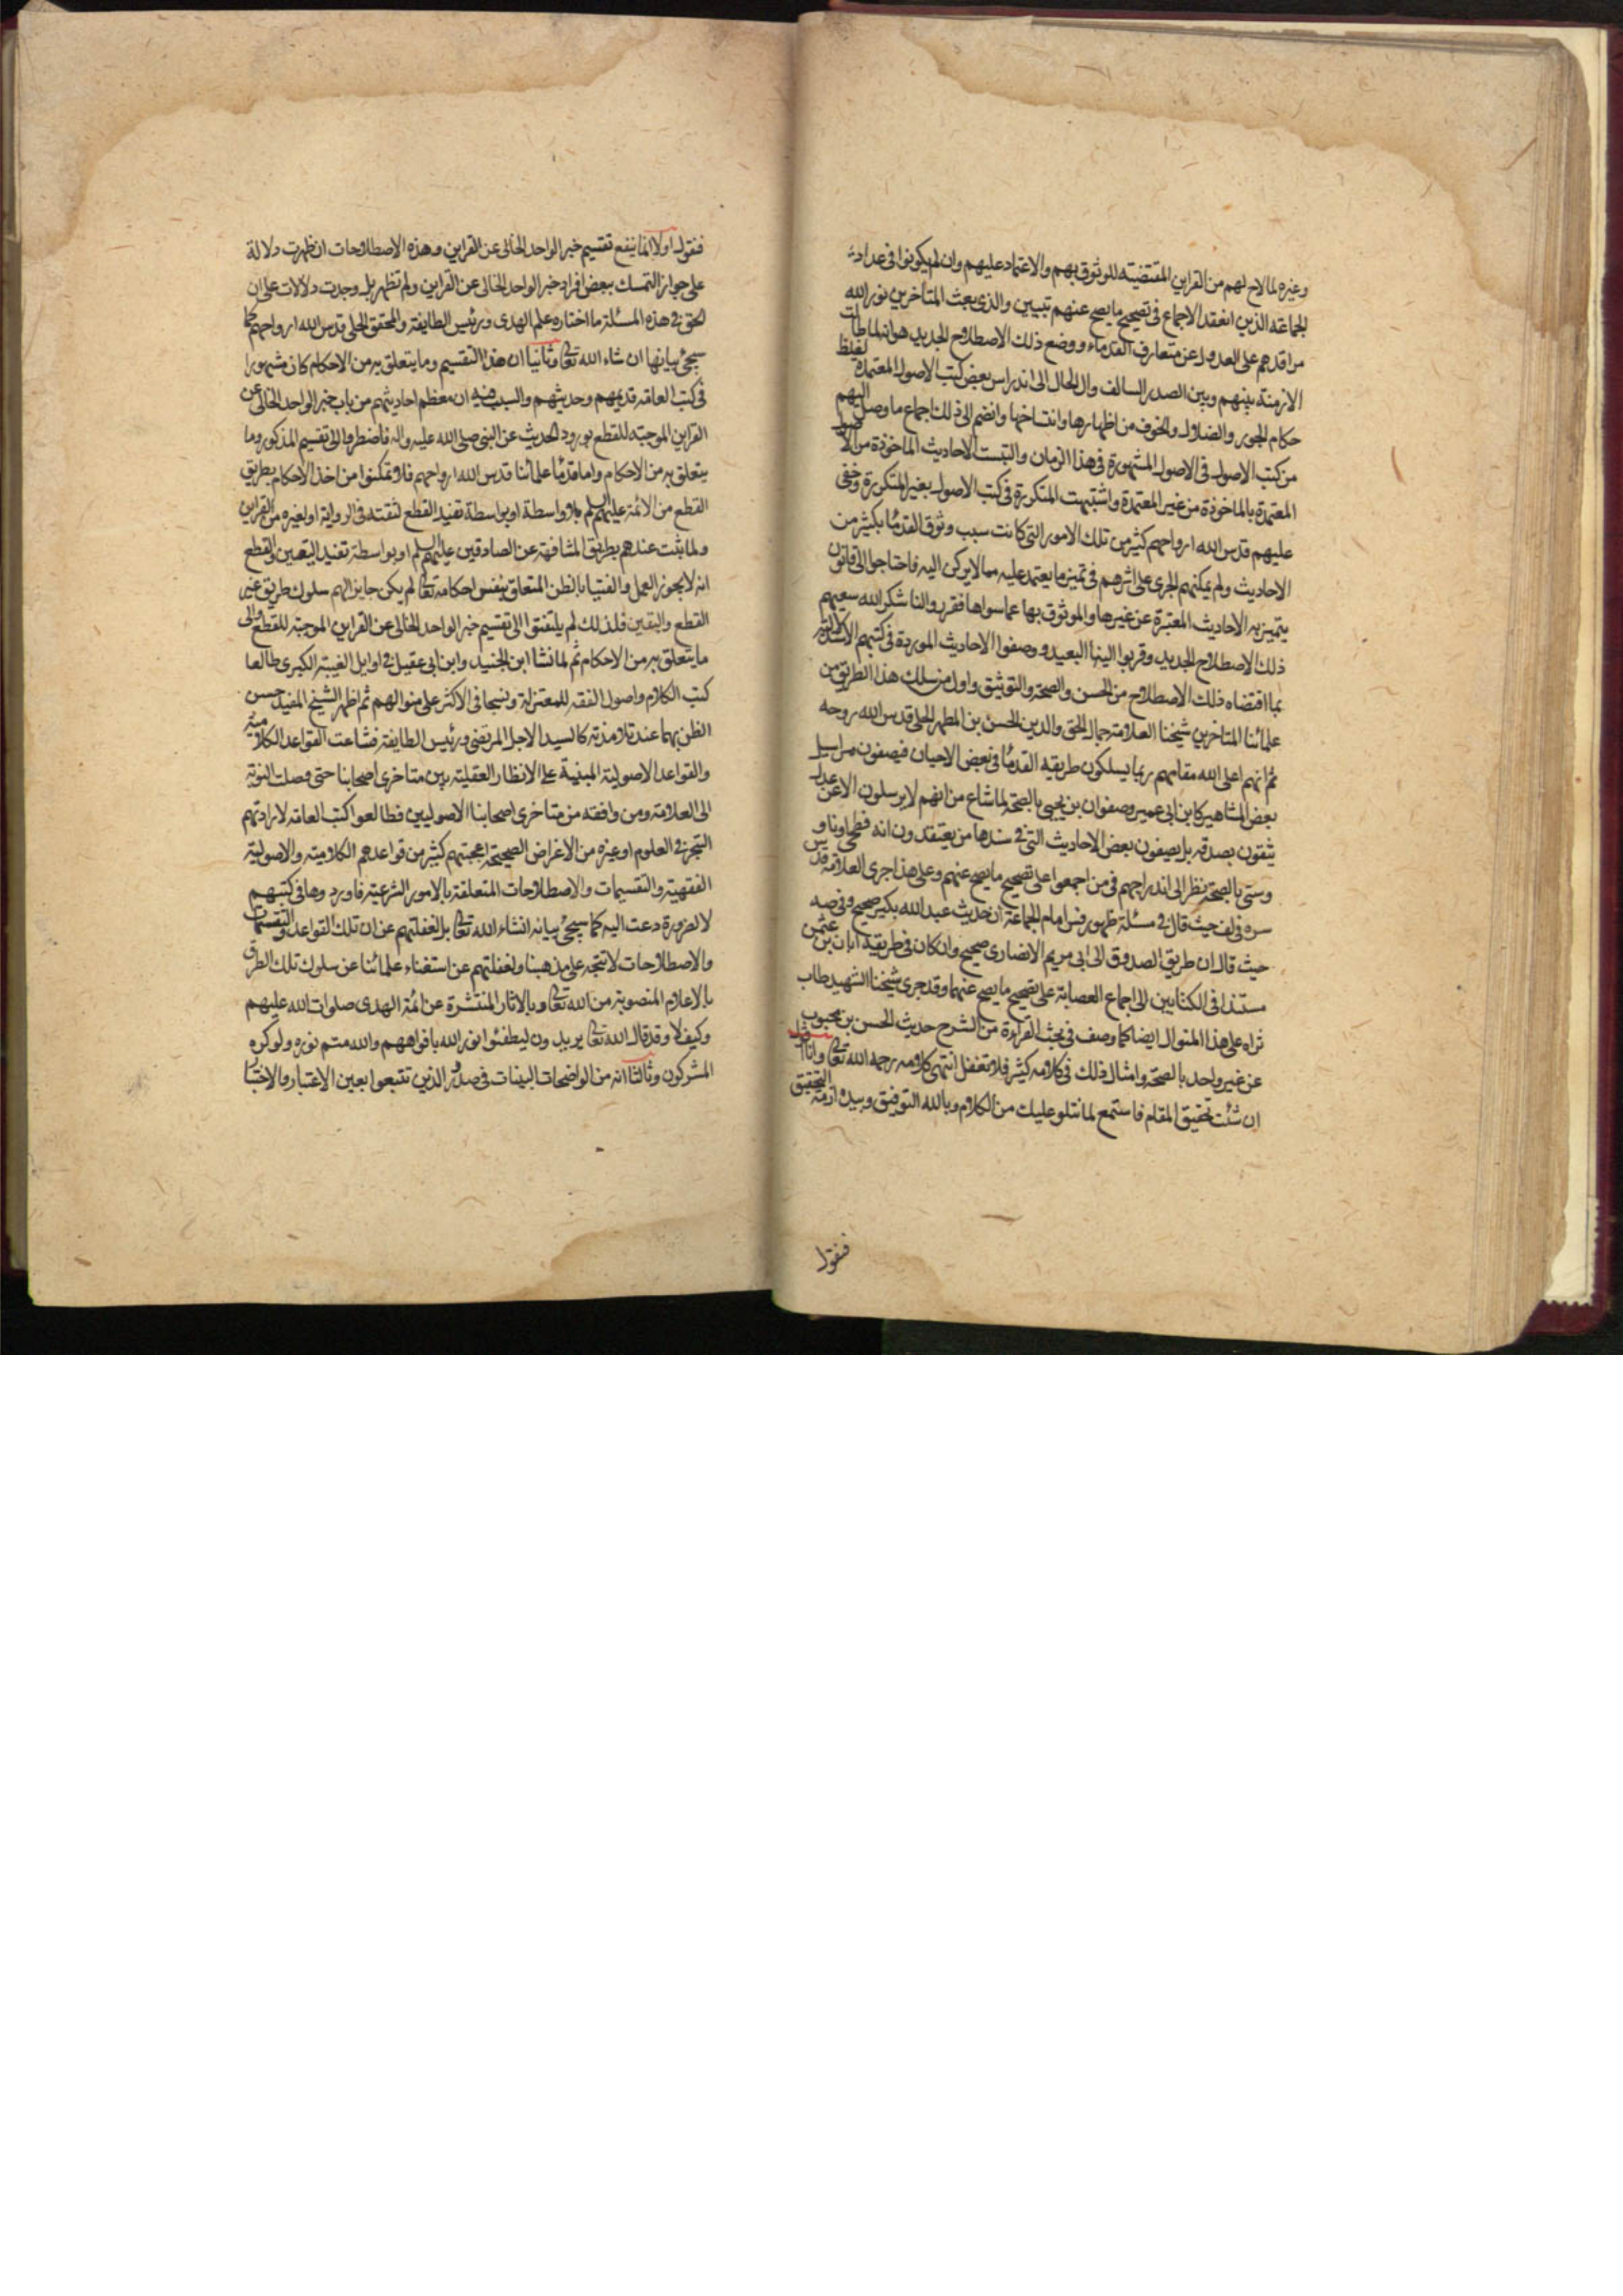 وغيره لما لاح لهم من القراين المقتضيته للوثوق بهم والاعتماد عليهم وان لم يكونوا فى عداد
الجماعة الذين انعقد الاجماع فى تصحيح ما يصح عنهم تبيين والذى بعث المتاخرين نور الله
مراقدهم على العدول عن متعارف القدماء ووضع ذلك الاصطلاح الجديد هو انه لما طالت
الازمنة بينهم وبين الصدر السالف وال الحال الى اندراس بعض كتب الاصول المعتمدة لتغلظ
حكام الجور والضلال والخوف من اظهارها وانتساخها وانضم الى ذلك اجماع ما وصل اليهم
من كتب الاصول فى الاصول المشهورة فى هذا الزمان والتبست الاحاديث الماخوذة من الاصول
المعتمدة بالماخوذة من غير المعتمدة واشتبهت المتكررة فى كتب الاصول بغير المتكررة وخفى
عليهم قدس الله ارواحهم كثير من تلك الامور التى كانت سبب وثوق القدما بكثير من
الاحاديث ولم يمكنهم الجرى على اثرهم فى تميز ما يعتمد عليه مما لا يركن اليه فاحتاجوا الى قانون
يتميز به الاحاديث المعتبرة عن غيرها والموثوق بها عما سواها فقرروا لنا شكر الله سعيهم
ذلك الاصطلاح الجديد وقربوا الينا البعيد ووصفوا الاحاديث الموردة فى كتبهم الاستدلالية
بما اقتضاه ذلك الاصطلاح من الحسن والصحة والتوثيق واول من سلك هذا الطريق من
علمائنا المتاخرين شيخنا العلامة جمال الحق والدين الحسن بن المطهر الحلى قدس الله روحه
ثم انهم اعلى الله مقامهم ربما يسلكون طريقه القدما فى بعض الاحيان فيصفون مراسيل
بعض المشاهير كابن ابى عمير وصفوان بن يحيى بالصحة لما شاع من انهم لا يرسلون الا عن عدل
يثقون بصدقه بل يصفون بعض الاحاديث التى فى سندها من يعتقدون انه فطحى او ناو
وسى بالصحة نظرا الى اندراجهم فى من اجمعوا على تصحيح ما يصح عنهم وعلى هذا جرى العلامة قدس
سره فى لف حيث قال فى مسئلة ظهور فسق امام الجماعة ان حديث عبد الله بكير صحيح وفى صه
حيث قال ان طريق الصدوق الى ابى مريم الانصارى صحيح وان كان فى طريقه ابان بن عثمن
مستندا فى الكتابين الى اجماع العصابة على تصحيح ما يصح عنهما وقد جرى شيخنا الشهيد طاب
ثراه على هذا المنوال ايضا كما وصف فى بحث القراءة من الشرح حديث الحسن بن محبوب
عن غير واحد بالصحة وامثال ذلك فى كلامه كثير فلا تغفل انتهى كلامه رحمه الله تعالى وانا اقول
ان شئت تحقيق المقام فاستمع لما نتلو عليك من الكلام وبالله التوفيق وبيده ازمة التحقيق
فنقول
فنقول اولا انما ينفع تقسيم خبر الواحد الخالى عن القراين وهذه الاصطلاحات ان ظهرت دلالة
على جواز التمسك ببعض افراد خبر الواحد الخالى عن القراين ولم تظهر بل وجدت دلالات على ان
الحق فى هذه المسئلة ما اختاره علم الهدى ورئيس الطايفة والمحقق الحلى قدس الله ارواحهم كما
سيجئ بيانها ان شاء الله تعالى وثانيا ان هذا التقسيم وما يتعلق به من الاحكام كان مشهورا
فى كتب العامة قديمهم وحديثهم والسبب فيه ان معظم احاديثهم من باب خبر الواحد الخالى عن
القراين الموجبته للقطع بورود الحديث عن النبى صلى الله عليه واله فاضطروا الى تقسيم المذكور وما
يتعلق به من الاحكام واما قدما علمائنا قدس الله ارواحهم فلا وتمكنوا من اخذ الاحكام بطريق
القطع من الائمة عليهم السلم بلا واسطة او بواسطة تفيد القطع لثقته فى الرواية او لغيره من القراين
ولما ثبت عندهم بطريق المشافهة عن الصادقين عليهم السلم او بواسطة تفيد اليقين والقطع
انه لا يجوز العمل والفتيا بالظن المتعلق بنفس احكامه تعالى لم يكن جايزا لهم سلوك طريق غير
القطع واليقين فلذلك لم يلتفتوا الى تقسيم خبر الواحد الخالى عن القراين الموجبته للقطع والى
ما يتعلق به من الاحكام ثم لما نشا ابن الجنيد وابن ابى عقيل فى اوايل الغيبة الكبرى طالعا
كتب الكلام واصول الفقه للمعتزلة ونسجا فى الاكثر على منوالهم ثم اظهر الشيخ المفيد حسن
الظن بهما عند تلامذته كالسيد الاجل المرتضى ورئيس الطايفة فشاعت القواعد الكلامية
والقواعد الاصولية المبنية على الانظار العقلية بين متاخرى اصحابنا حتى وصلت النوبة
الى العلامة ومن وافقه من متاخرى اصحابنا الاصوليين فطالعوا كتب العامة لارادتهم
التبحر فى العلوم او غيره من الاغراض الصحيحة اعجبتهم كثير من قواعدهم الكلامية والاصولية
الفقهية والتقسيمات والاصطلاحات المتعلقة بالامور الشرعية فاوردوها فى كتبهم
لا لضرورة دعت اليه كما سيجئ بيانه انشاء الله تعالى بل لغفلتهم عن ان تلك القواعد والتقسيمات
والاصطلاحات لا تتجه على مذهبنا ولغفلتهم عن استغناء علمائنا عن سلوك تلك الطرق
بالاعلام المنصوبة من الله تعالى وبالاثار المنتشرة عن ائمة الهدى صلوات الله عليهم
وكيف لا وقد قال الله تعالى يريدون ليطفئوا نور الله بافواههم والله متم نوره ولو كره
المشركون وثالثا انه من الواضحات البينات فى صدور الذين تتبعوا بعين الاعتبار والاختبار